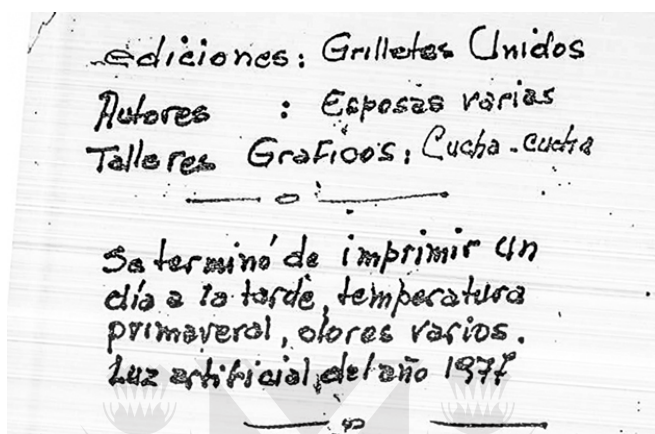 Ediciones: Grilletes Unidos
Autores : Esposas varias
Talleres Graficos: Cucha-cucha
Se terminó de imprimir un
día a la tarde, temperatura
primaveral, olores varios.
Luz artificial, del año 1977